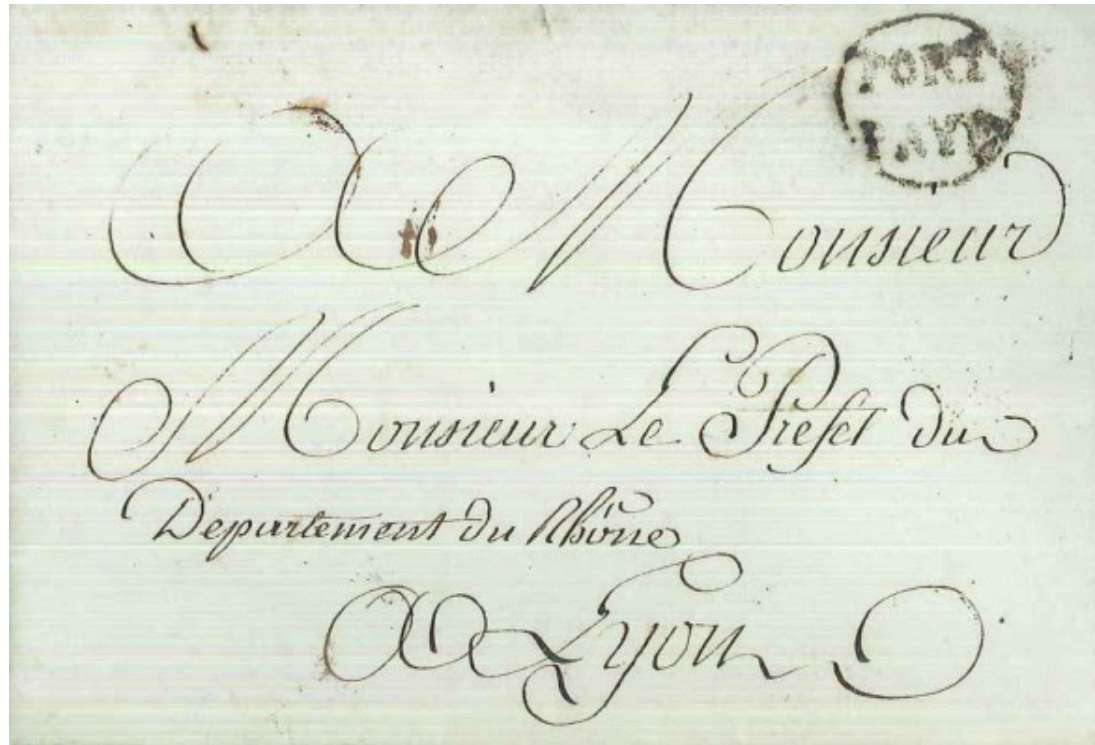 PORT
PAYÉ
A Monsieur
Monsieur Le Prefet du
Departement du Rhône
A Lyon